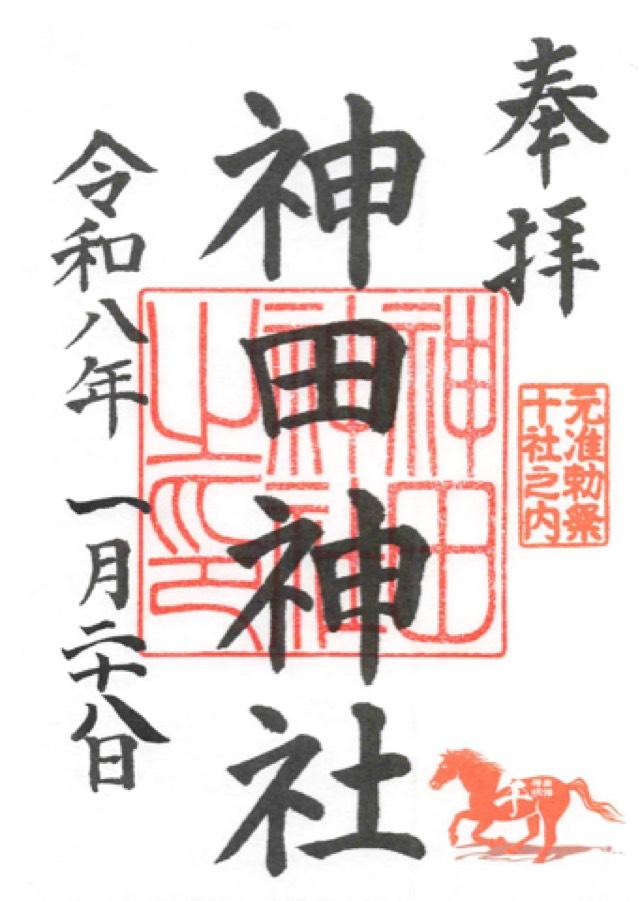 奉拝
元准勅祭
十社之内
午
神田神社
神田
神社
之印
令和八年 一月二十八日